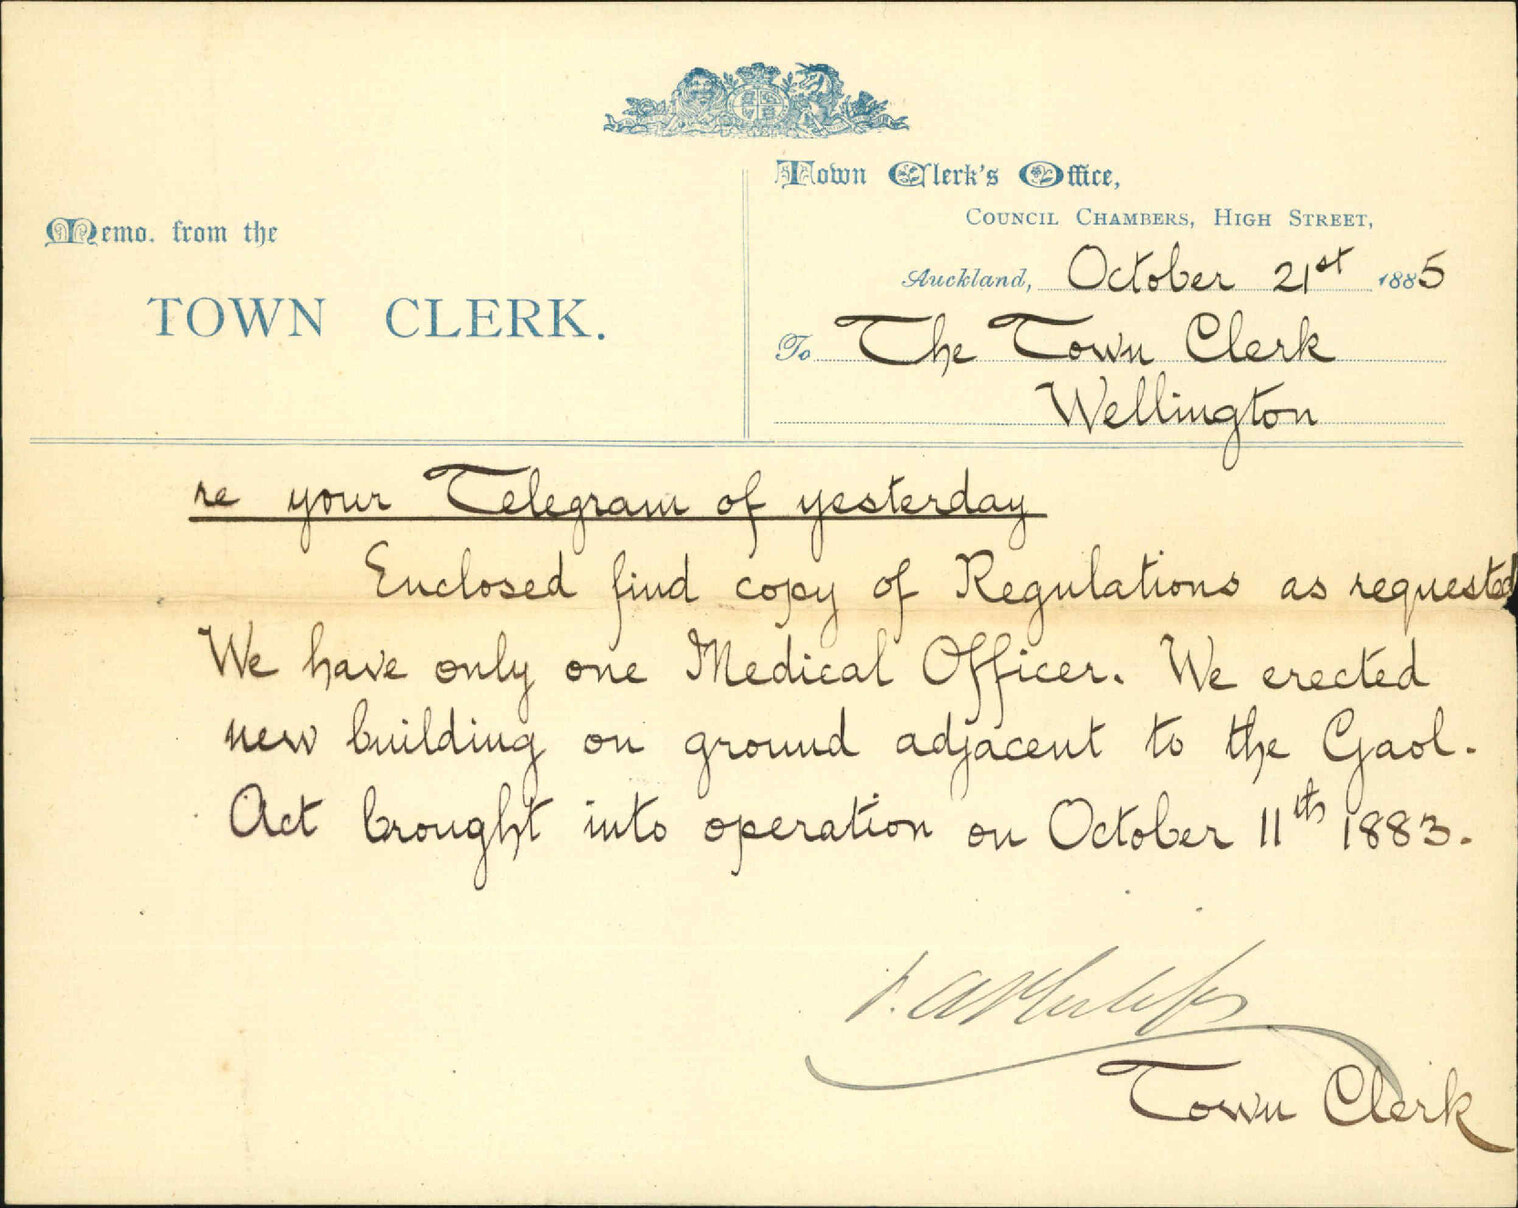 Town Clerk's Office,
Council Chambers, High Street,
Memo. from the
TOWN CLERK.
Auckland, October 21st 1885
To The Town Clerk
Wellington
re your Telegram of yesterday
Enclosed find copy of Regulations as requested
We have only one Medical Officer. We erected
new building on ground adjacent to the Gaol.
Act brought into operation on October 11th 1883.
Town Clerk